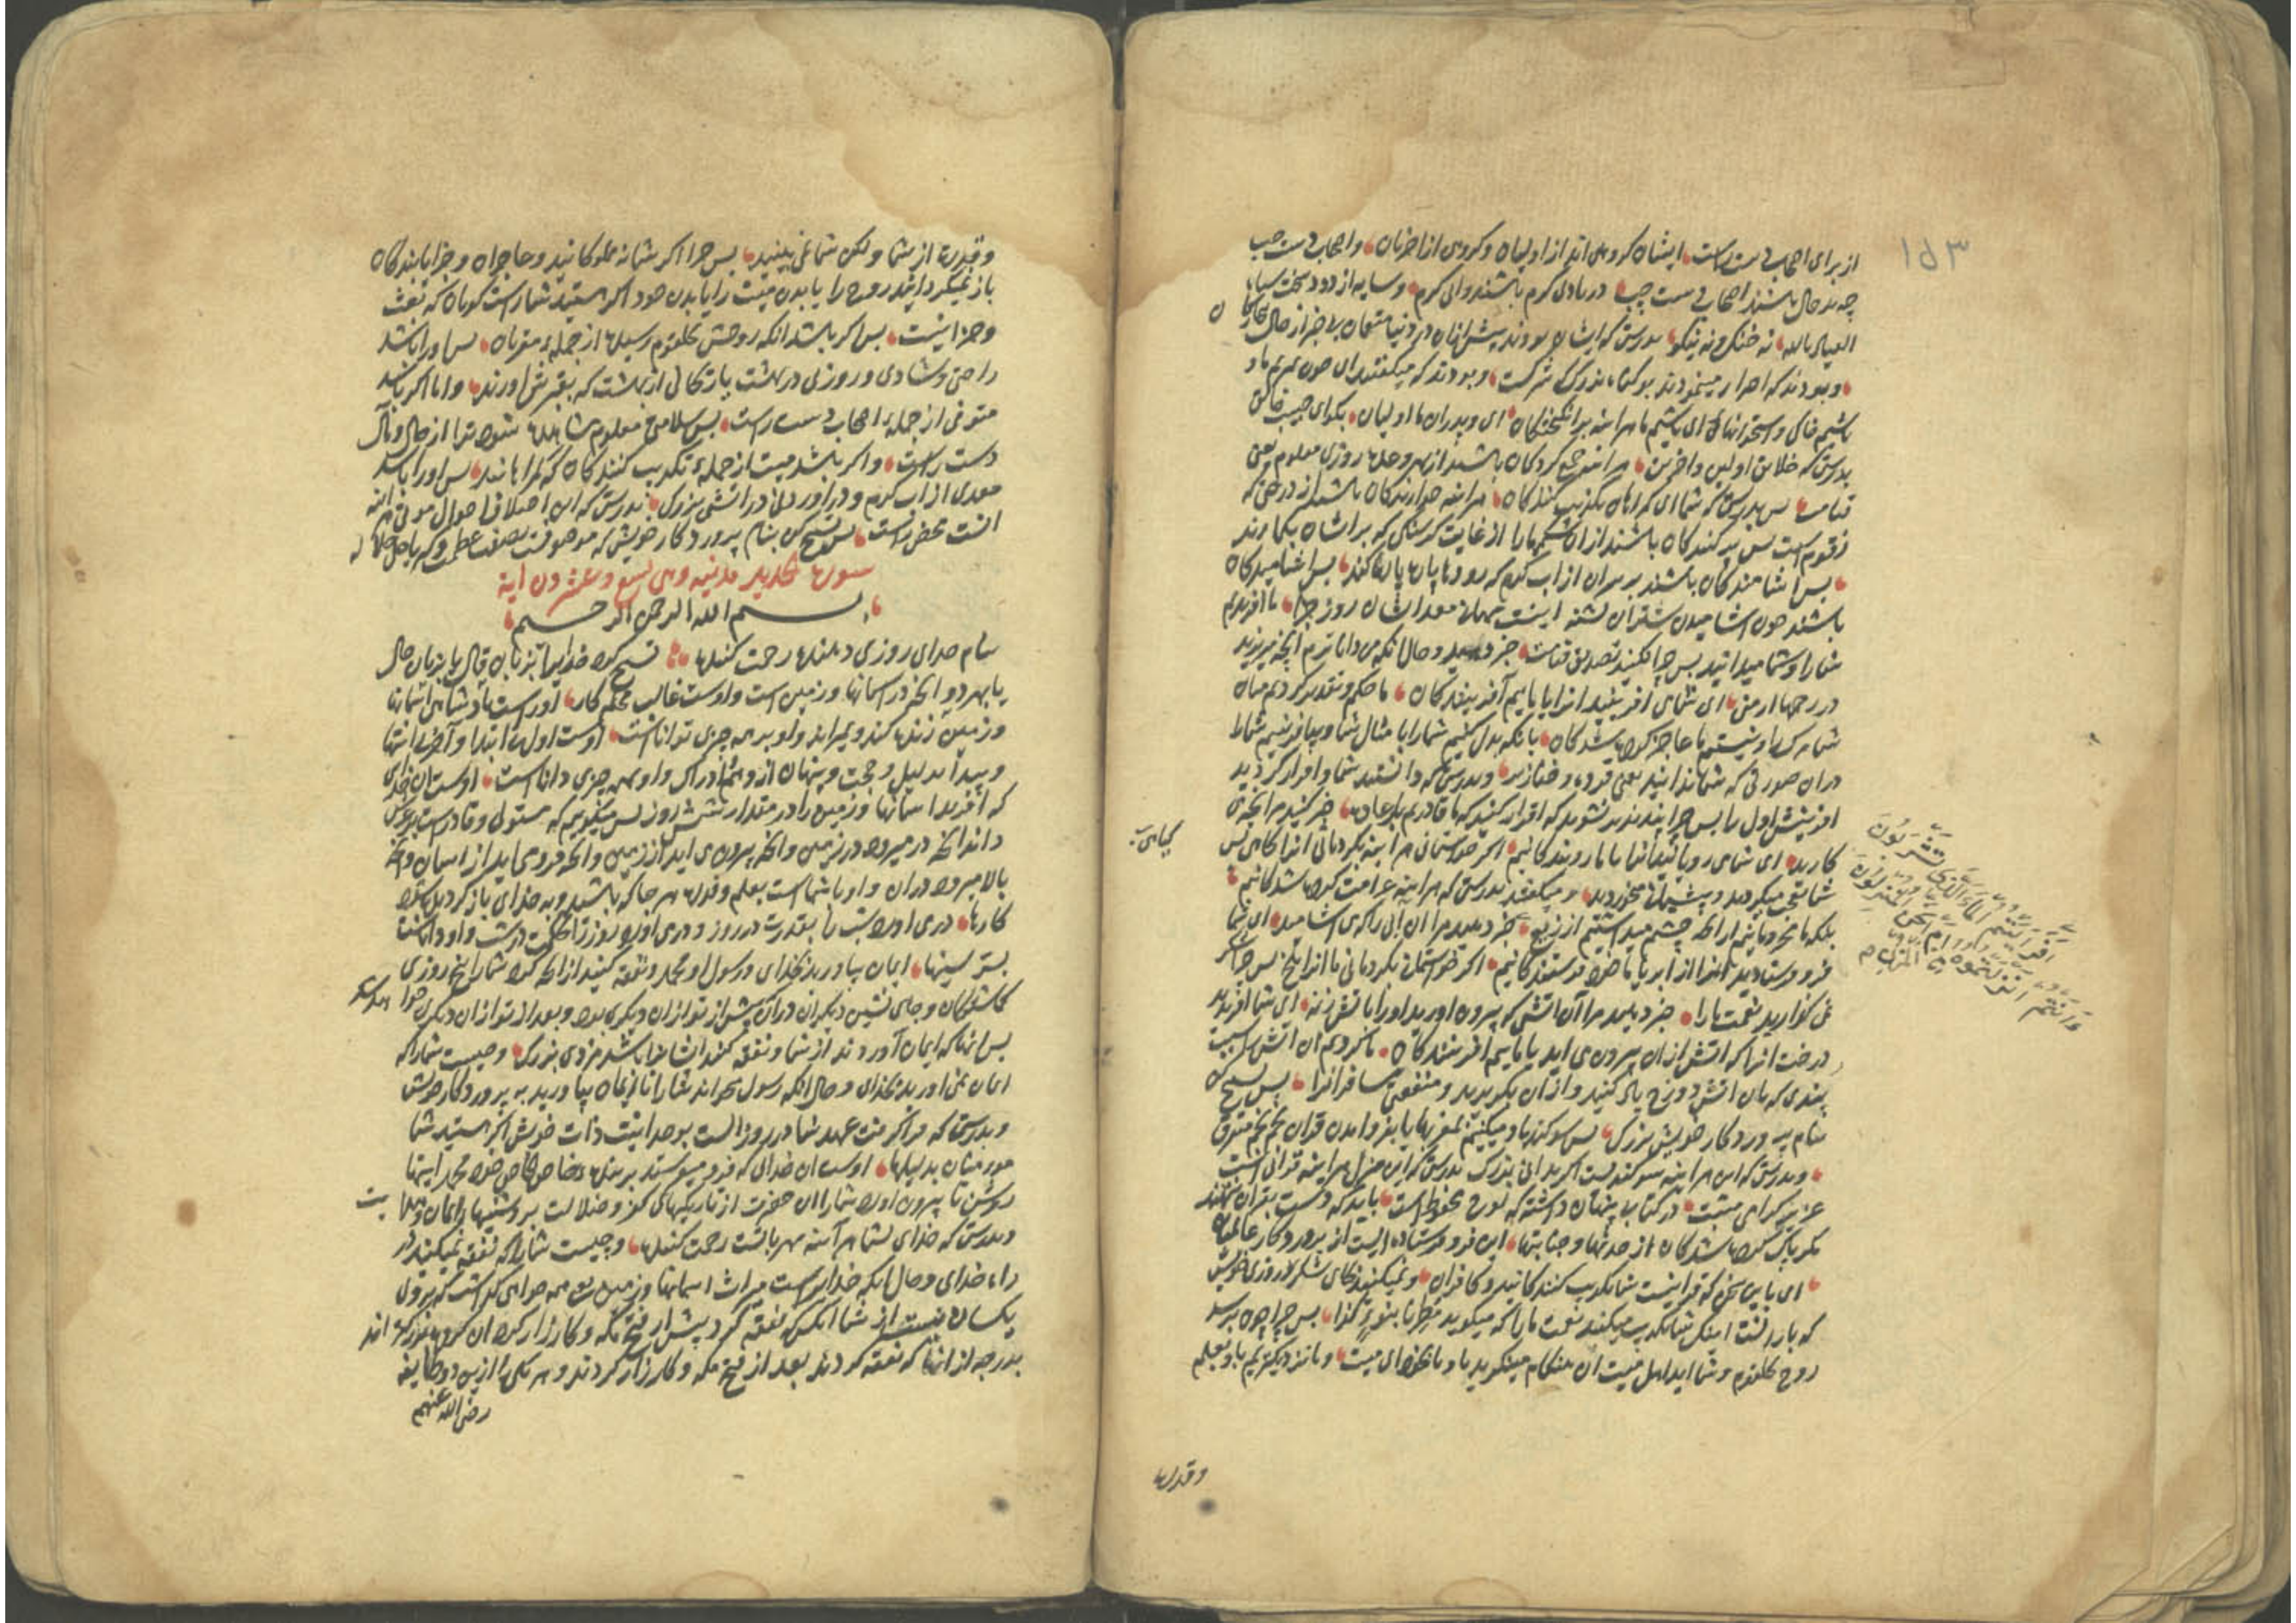 ۱۵۳
از برای اصحاب دست راست ایشان گروهی اند از اولیان و گروهی از اخریان واصحاب دست چپ
چه بد حال باشند اصحاب دست چپ در بادی گرم باشند وابی گرم وسایه از دود سخت سیاه
العیاذ بالله نه خنک ونه نیکو بدرستی که ایشان بودند پیش ازان در دنیا متنعمان
وبودند که اصرار مینمودند بر گناه بزرگ که شرکست وبودند که میگفتند ای چون بمیریم ما و
باشیم خاکی و استخوانهائی ای باشیم ما هراینه برانگیختگان ای وپدران ما اولیان بگو ای حبیب
بدرستی که خلایق اولین واخرین هراینه جمع کردگان باشند از بهر وعده روزی معلوم یعنی
قیامت پس بدرستی که شما ای گمراهان تکذیب کنندگان هراینه خورندگان باشید از درختی که
زقومست پس پر کنندگان باشند ازان شکمها را از غایت گرسنگی که بر ایشان بگمارند
پس اشامندگان باشند بر سران از اب گرم که رودها پاره پاره کند پس اشامیدگان
باشند چون اشامیدن شتران تشنه اینست مهمانی ایشان روز جزا ما افریدیم
شما را وشما میدانید پس چرا نکنید تصدیق قیامت خبر دهید وحال انکه من داناترم انچه میریزید
در رحمها از منی ای شمای افرینید انرا یا ماییم آفرینندگان ما حکم وتقدیر کردیم میان
شما مرک را ونیستیم ما عاجز کرده شدگان بانکه بدل کنیم شما را با مثال شما وبیافرینیم شما را
دران صورتی که شما ندانید یعنی قرده و خنازیر وبدرستی که دانستید شما واقرار کردید
افرینش اول را پس چرا پند پذیر نشوید که اقرار کنید که ما قادریم بر اعاده خبر کنید مرا انچه می
کارید ای شمای رویانید انرا یا ما رویندگانیم اگر خواستمانی هراینه بگردمانی انرا کاهی پس
شما تعجب میکردید وپشیمانی میخوردید ومیگفتید بدرستی که هراینه غرامت کرده شدگانیم
بلکه ما محرومانیم از انکه چشم میداشتیم از ریع خبر دهید مرا ان ابی را که می اشامید ای شما
فرو فرستادید انرا از ابر یا ما فرو فرستندگانیم اگر خواستمانی بگردمانی ما انرا تلخ پس چرا شکر
نمی گذارید نعمت ما را خبر دهید مرا آن اتشی که بیرون اورید اورا با تش زنه ای شما افریدید
درخت انرا که اتش ازان بیرون می اید یا ماییم افرینندگان ما کردیم ان اتش را سبب
پندی که بان اتش دوزخ یاد کنید وازان بگریزید ومنفعتی مسافرانرا پس تسبیح کن
بنام پروردگار خویش بزرگ پس سوگند یاد میکنیم بمغربها یا بفرو امدن قران نجم نجم متفرق
وبدرستی که این هراینه سوگندیست اگر بدانی بزرگ بدرستی که این منزل هراینه قرانی است
عزیز گرامی مثبت در کتاب پنهان داشته که لوح محفوظ است باید که دست بقران ننهند
مگر پاک کرده شدگان از حدثها وجنابتها این فرو فرستاده ایست از پروردگار عالمیان
ای باین سخن که قرانیست شما تکذیب کنندگانید وکافران ومیکنید بجای شکر روزی خویش
که بارانست اینکه شما تکذیب میکنید نعمت ما را که میگوید مُطِرنا بنوءِ کذا پس چرا چون برسد
روح بحلقوم وشما ایداهل میت ان هنگام مینگرید باو یا بنحوای میت وما نزدیکتریم باو بعلم
بجای
افرایتم الماء الذی تشربون
ءانتم انزلتموه من المزن ام نحن المنزلون
وقدرة
وقدرت از شما ولکن شما نمی بینید پس چرا اگر شما نه مملوکانید وحاجزان وجزا یابندگان
باز نمیگردانید روح را یا بدن میت را یا بدن خود اگر هستید شما راست گویان که بعث
وجزا نیست پس اگر باشد انکه روحش بحلقوم رسیده از جمله مقربان پس اورا باشد
راحتی وشادی و روزی در بهشت یا ریحانی از بهشت که بقبرش اورند واما اگر باشد
متوفی از جمله اصحاب دست راست پس سلامتی معلوم شود ترا از حال
دست راست واگر باشد میت از جمله تکذیب کنندگان که گمراهانند پس اورا باشد
معدی از اب گرم و دراوردنی در اتشی بزرگ بدرستی که این اختلاف احوال
انست محض راست پس تسبیح کن بنام پروردگار خویش که موصوفست بصفت عظمت
سورة الحدید مدنیه وهی تسع وعشرون ایة
بسم الله الرحمن الرحیم
بنام خدای روزی دهنده رحمت کننده تسبیح کرد خدایرا بزبان قال یا بزبان حال
یا بهر دو انچه در اسمانها وزمین است واوست غالب محکم کار اوراست پادشاهی اسمانها
وزمین زنده کند ومیراند واو بر همه چیزی تواناست اوست اول بی ابتدا وآخر بی انتها
وپیدا بدلیل وحجت وپنهان از وهم وادراک واو بهمه چیزی داناست اوست ان خدای
که افرید اسمانها وزمین را در مقدار شش روز پس میگویم که مستولی وقادرست بر عرش
داند انچه در میرود در زمین وانچه بیرون می اید از زمین وانچه فرو می اید از اسمان وانچه
بالا میرود دران واو با شماست بعلم وقدرت هر جا که باشید وبه خدای بازگردیده شود
کارها دری اورد شب را بقدرت در روز ودری اورد روز را بحکمت در شب واو داناست
بسر سینها ایمان بیاورید بخدای ورسول او محمد ونفقه کنید از انچه کرد شما را یعنی روزی
گماشتگان وجای نشین دیگران دران پیش از تو ازان دیگری بود وبعد از تو ازان دیگری خواهد شد
پس انها که ایمان آوردند از شما ونفقه کنند ایشانرا باشد مزدی بزرگ وچیست شما را که
ایمان نمی اورید بخدای وحال انکه رسول میخواند شما را تا ایمان بیاورید به پروردگار خویش
وبدرستی که فرا گرفت عهد شما در روز الست بوحدانیت ذات خویش اگر هستید شما
مومنان بدلیلها اوست ان خدای که فرو میفرستد بر بنده خاص خود محمد ایتها
روشن تا بیرون اورد شما را ان حضرت از تاریکیهای کفر وضلالت بروشنیها ایمان وهدایت
وبدرستی که خدای بشما هر آینه مهربانست رحمت کننده وچیست شما را که نفقه نمیکنید در
راه خدای وحال انکه خدایراست میراث اسمانها وزمین
یکسان نیست از شما انکس که نفقه کرد پیش از فتح مکه وکارزار کرد ان گروه بزرگتر اند
بدرجه از انها که نفقه کردند بعد از فتح مکه وکارزار کردند وهر یکی را ازین دو طایفه
رضی الله عنهم